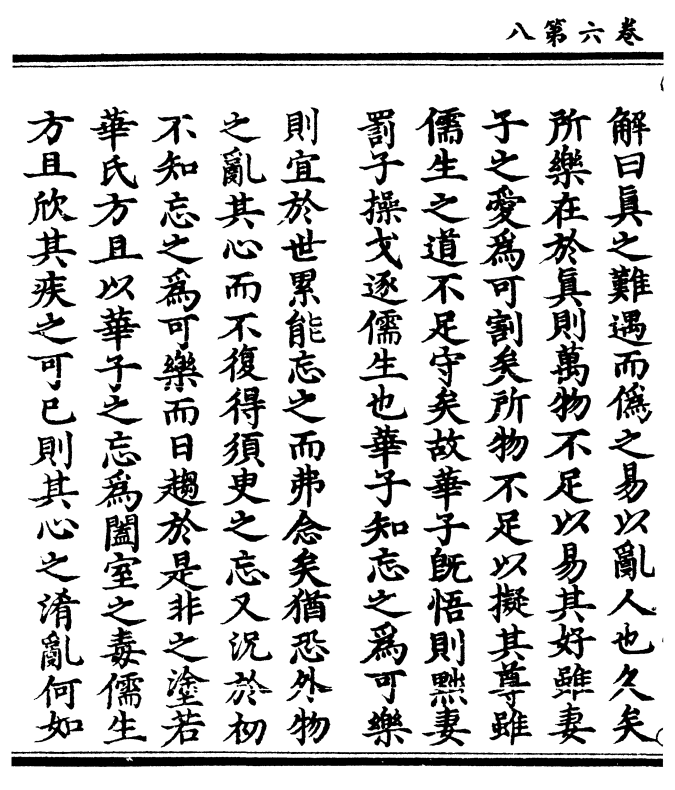 卷六第八
解曰真之難遇而僞之易以亂人也久矣
所樂在於真則萬物不足以易其好雖妻
子之愛爲可割矣所物不足以擬其尊雖
儒生之道不足守矣故華子既悟則黜妻
罰子操戈逐儒生也華子知忘之爲可樂
則宜於世累能忘之而弗念矣猶恐外物
之亂其心而不復得須臾之忘又況於初
不知忘之爲可樂而日趨於是非之塗若
華氏方且以華子之忘爲闔室之毒儒生
方且欣其疾之可已則其心之淆亂何如